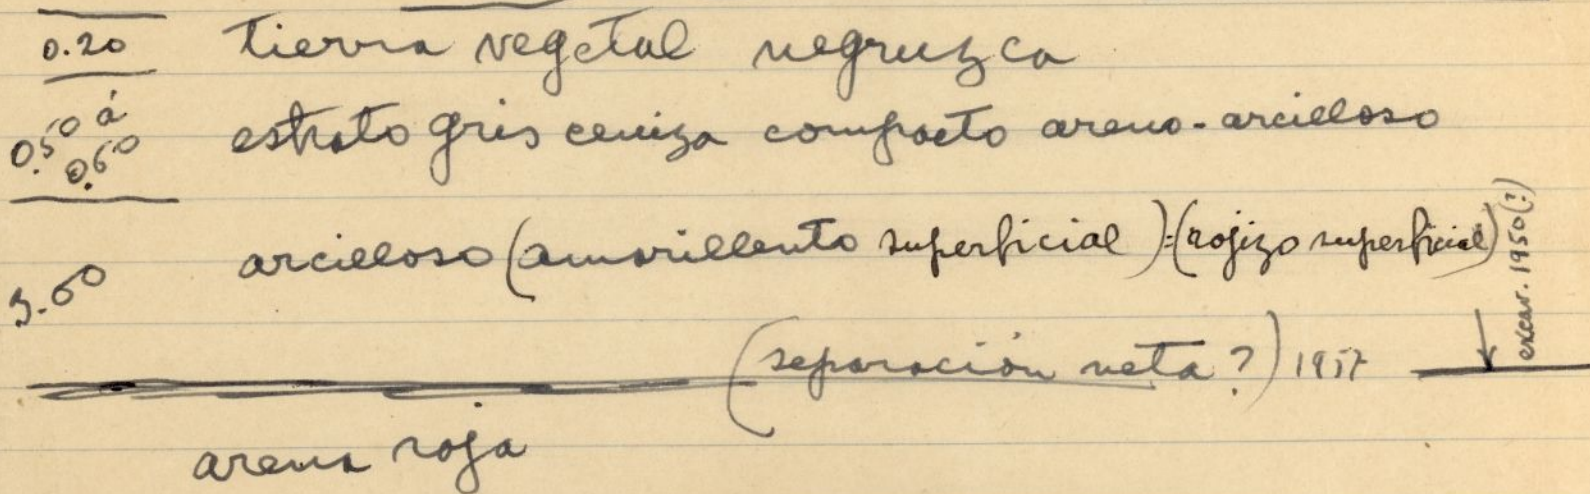 0.20 tierra vegetal negruzca
0.50 á 0.60 estrato gris ceniza compacto areno-arcilloso
3.00 arcilloso (amarillento superficial) = (rojizo superficial)
excav. 1950 (?)
(separación neta?) 1957
arena roja